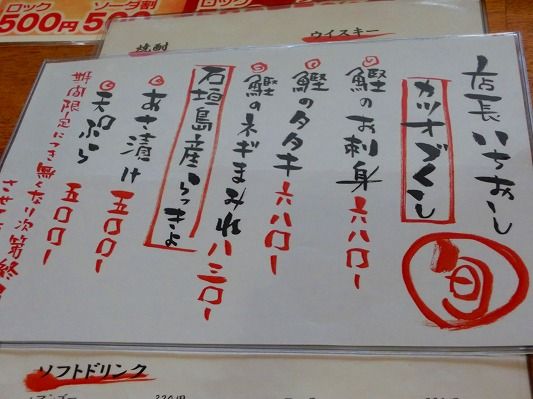 ロック
500円
ソーダ割
500
ロック
焼酎
ウイスキー
店長いちおし
旬
カツオづくし
鰹のお刺身 六八〇ー
鰹のタタキ 六八〇ー
鰹のネギまみれ 八三〇ー
石垣島産らっきょ
あさ漬け 五〇〇ー
天ぷら 五〇〇ー
期間限定につき無くなり次第終
させて
ソフトドリンク